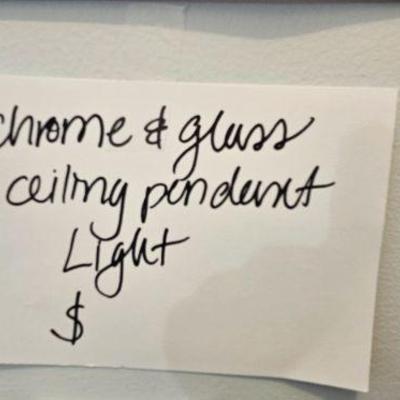 chrome & glass
ceiling pendant
Light
$